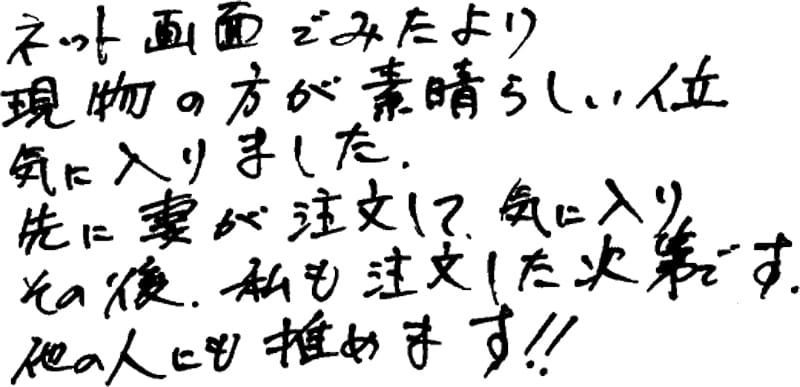 ネット画面でみたより
現物の方が素晴らしい位
気に入りました.
先に妻が注文して、気に入り
その後、私も注文した次第です.
他の人にも推めます!!